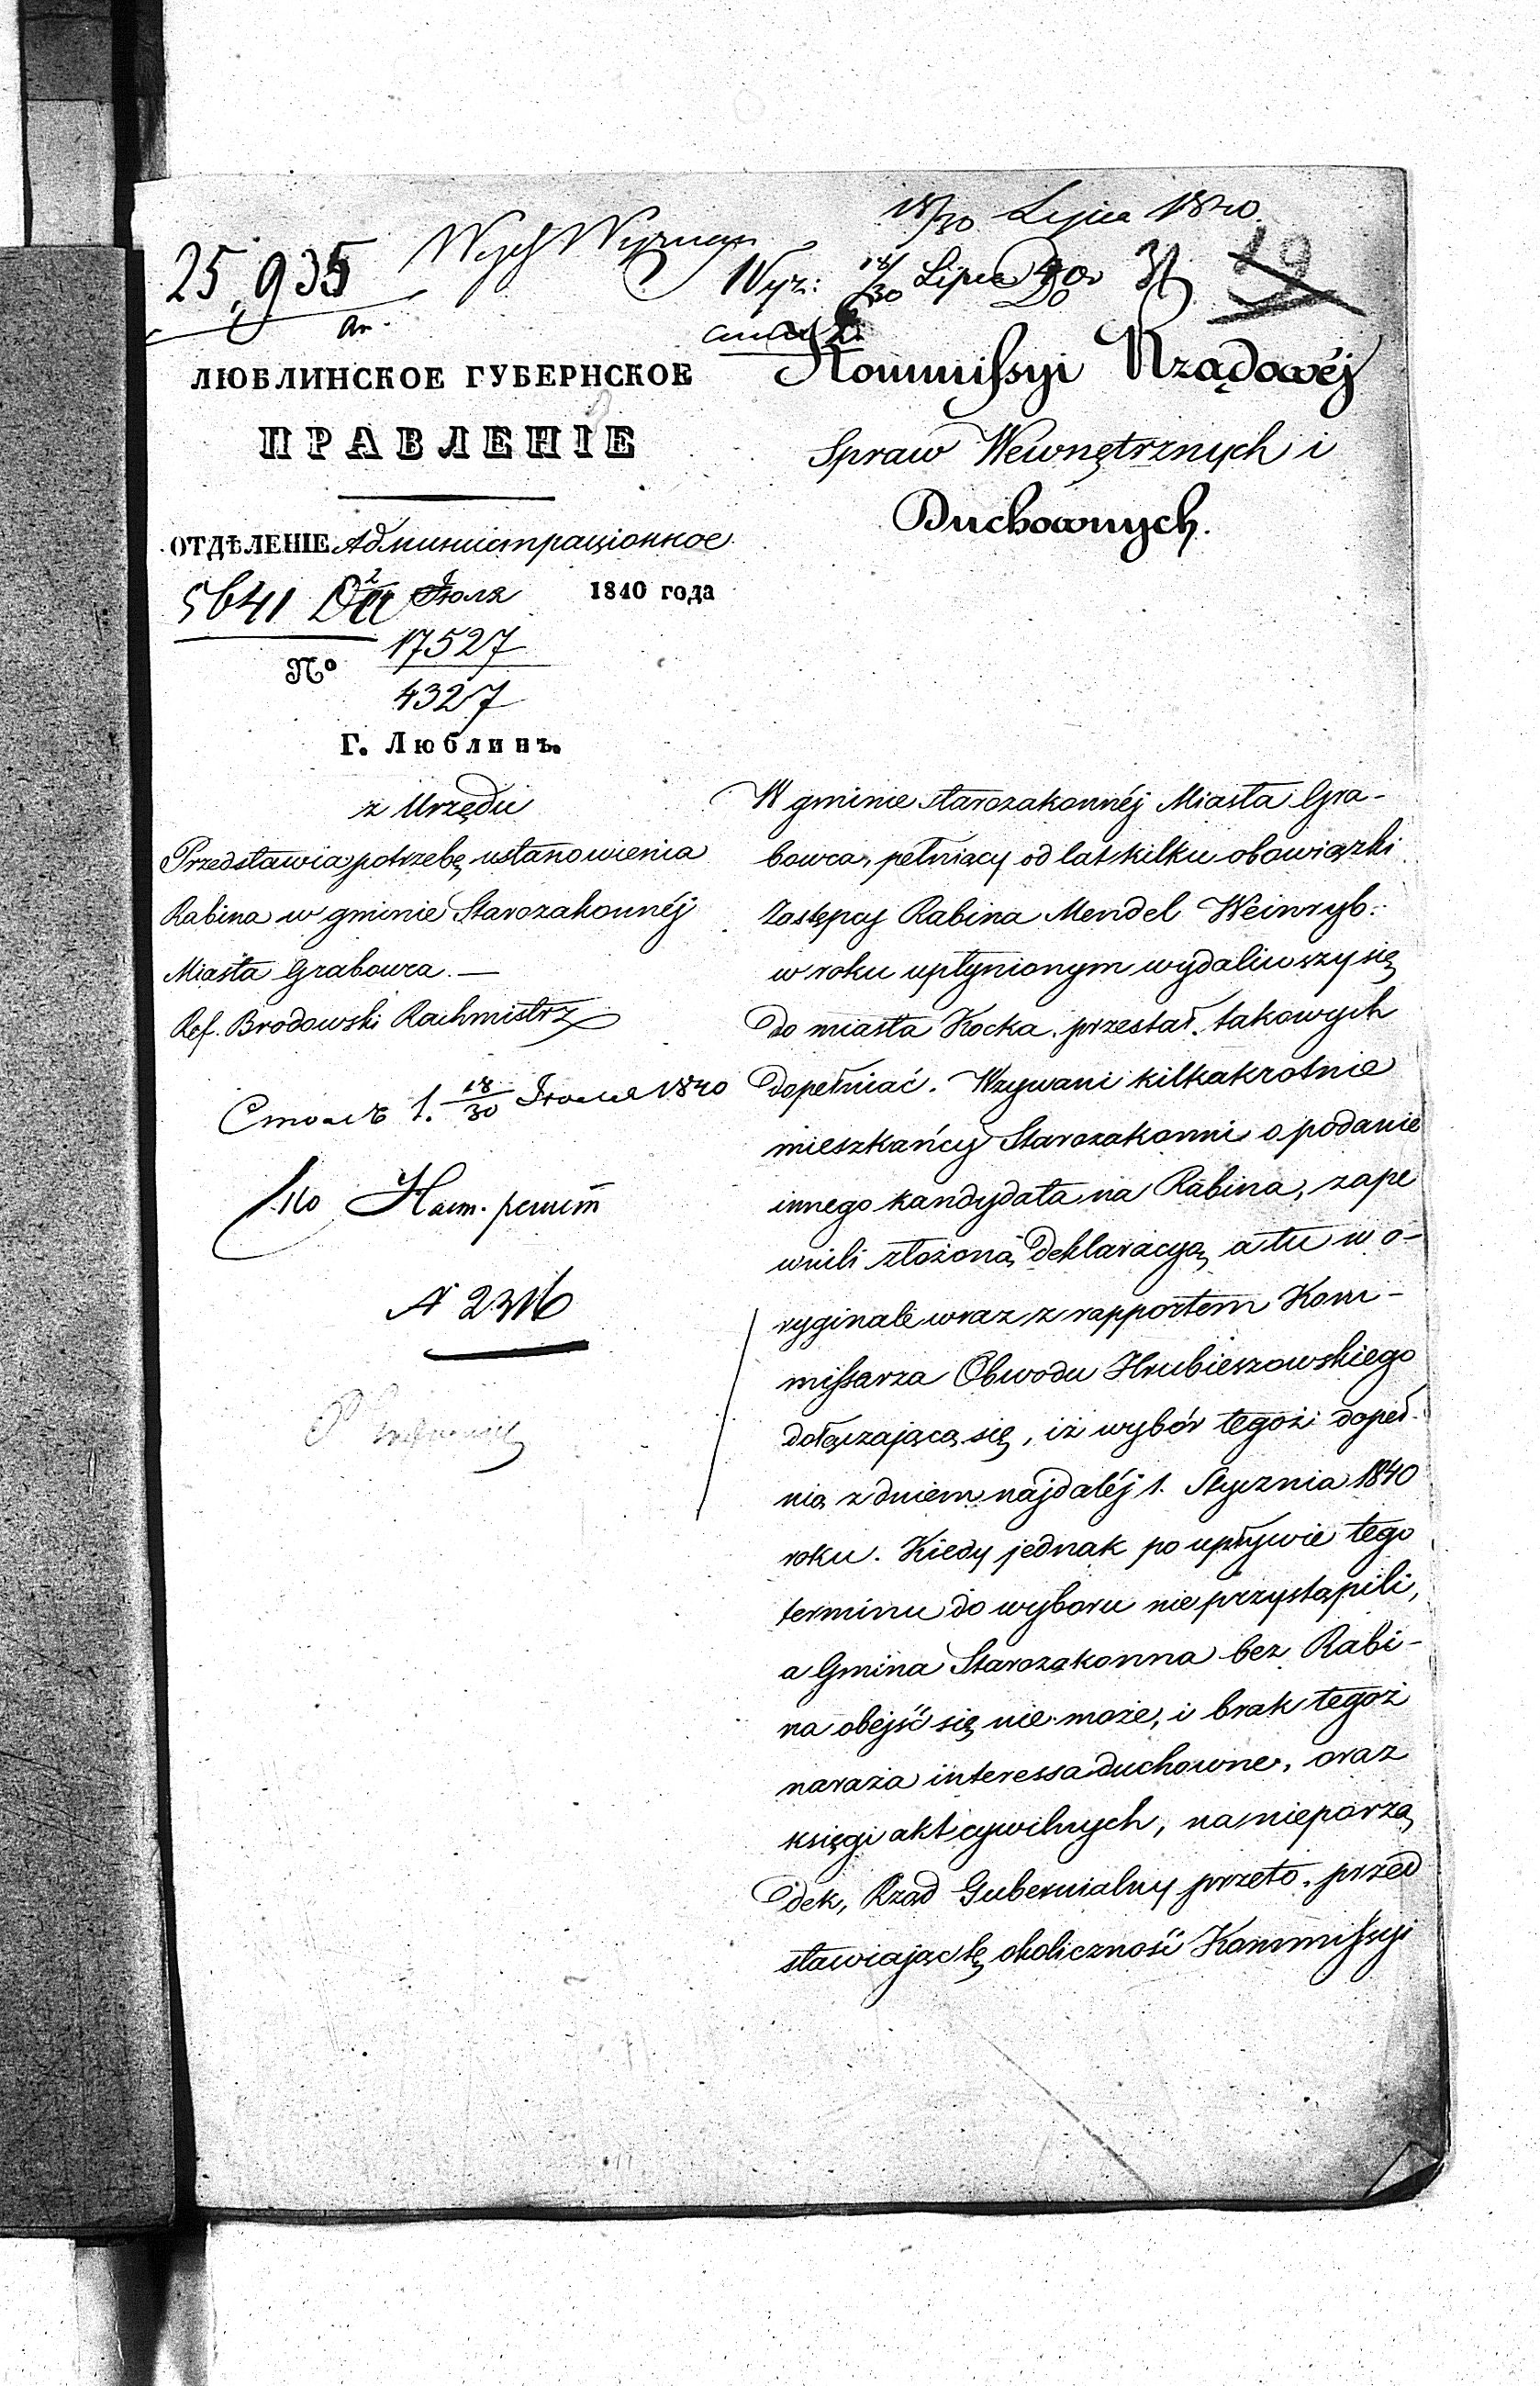 18/30 Lipca 1840.
25,935 Wydz Wyznań
Wyz: 18/30 Lipca 40
ЛЮБЛИНСКОЕ ГУБЕРНСКОЕ
ПРАВЛЕНІЕ
ОТДѢЛЕНІЕ Администраціонное
5641 Іюля 1840 года
№ 17527
4327
Г. Люблинъ.
z Urzędu
Przedstawia potrzebę ustanowienia
Rabina w gminie Starozakonnéj
Miasta Grabowca. —
Ref. Brodowski Rachmistrz
Столъ 1. 18/30 Іюля 1840
По Наст. регист
N 2316
Do
Kommissyi Rządowéj
Spraw Wewnętrznych i
Duchownych.
W gminie starozakonnéj Miasta Gra-
bowca, pełniący od lat kilku obowiązki
Zastępcy Rabina Mendel Weinryb.
w roku upłynionym wydaliwszy się
do miasta Kocka. przestał. takowych
dopełniać. Wzywani kilkakrotnie
mieszkańcy Starozakonni o podanie
innego kandydata na Rabina, zape
wnili złożoną deklaracyą a tu w o-
ryginale wraz z rapportem Kom-
missarza Obwodu Hrubieszowskiego
dołączającą się, iż wybór tegoż dopeł-
nią z dniem najdaléj 1. Stycznia 1840
roku. Kiedy jednak po upływie tego
terminu do wyboru nie przystąpili,
a Gmina Starozakonna bez Rabi-
na obejść się nie może, i brak tegoż
naraża interessa duchowne, oraz
księgi akt cywilnych, na nieporzą
dek, Rząd Gubernialny przeto. przed
stawiając tę okoliczność Kommissyi